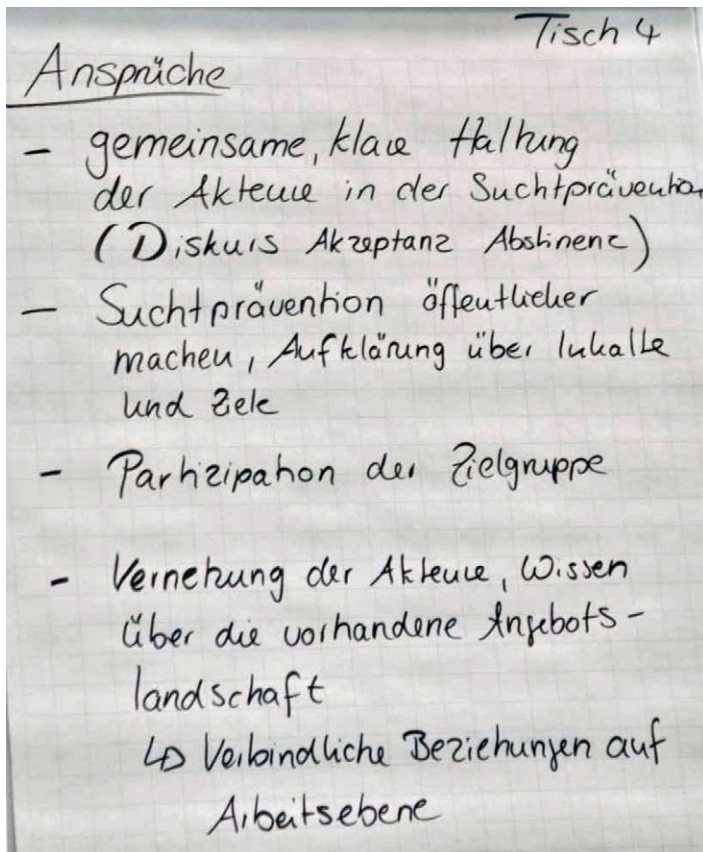 Tisch 4
Ansprüche
- gemeinsame, klare Haltung
der Akteure in der Suchtprävention
(Diskurs Akzeptanz Abstinenz)
- Suchtprävention öffentlicher
machen, Aufklärung über Inhalte
und Ziele
- Partizipation der Zielgruppe
- Vernetzung der Akteure, Wissen
über die vorhandene Angebots-
landschaft
↳ Verbindliche Beziehungen auf
Arbeitsebene